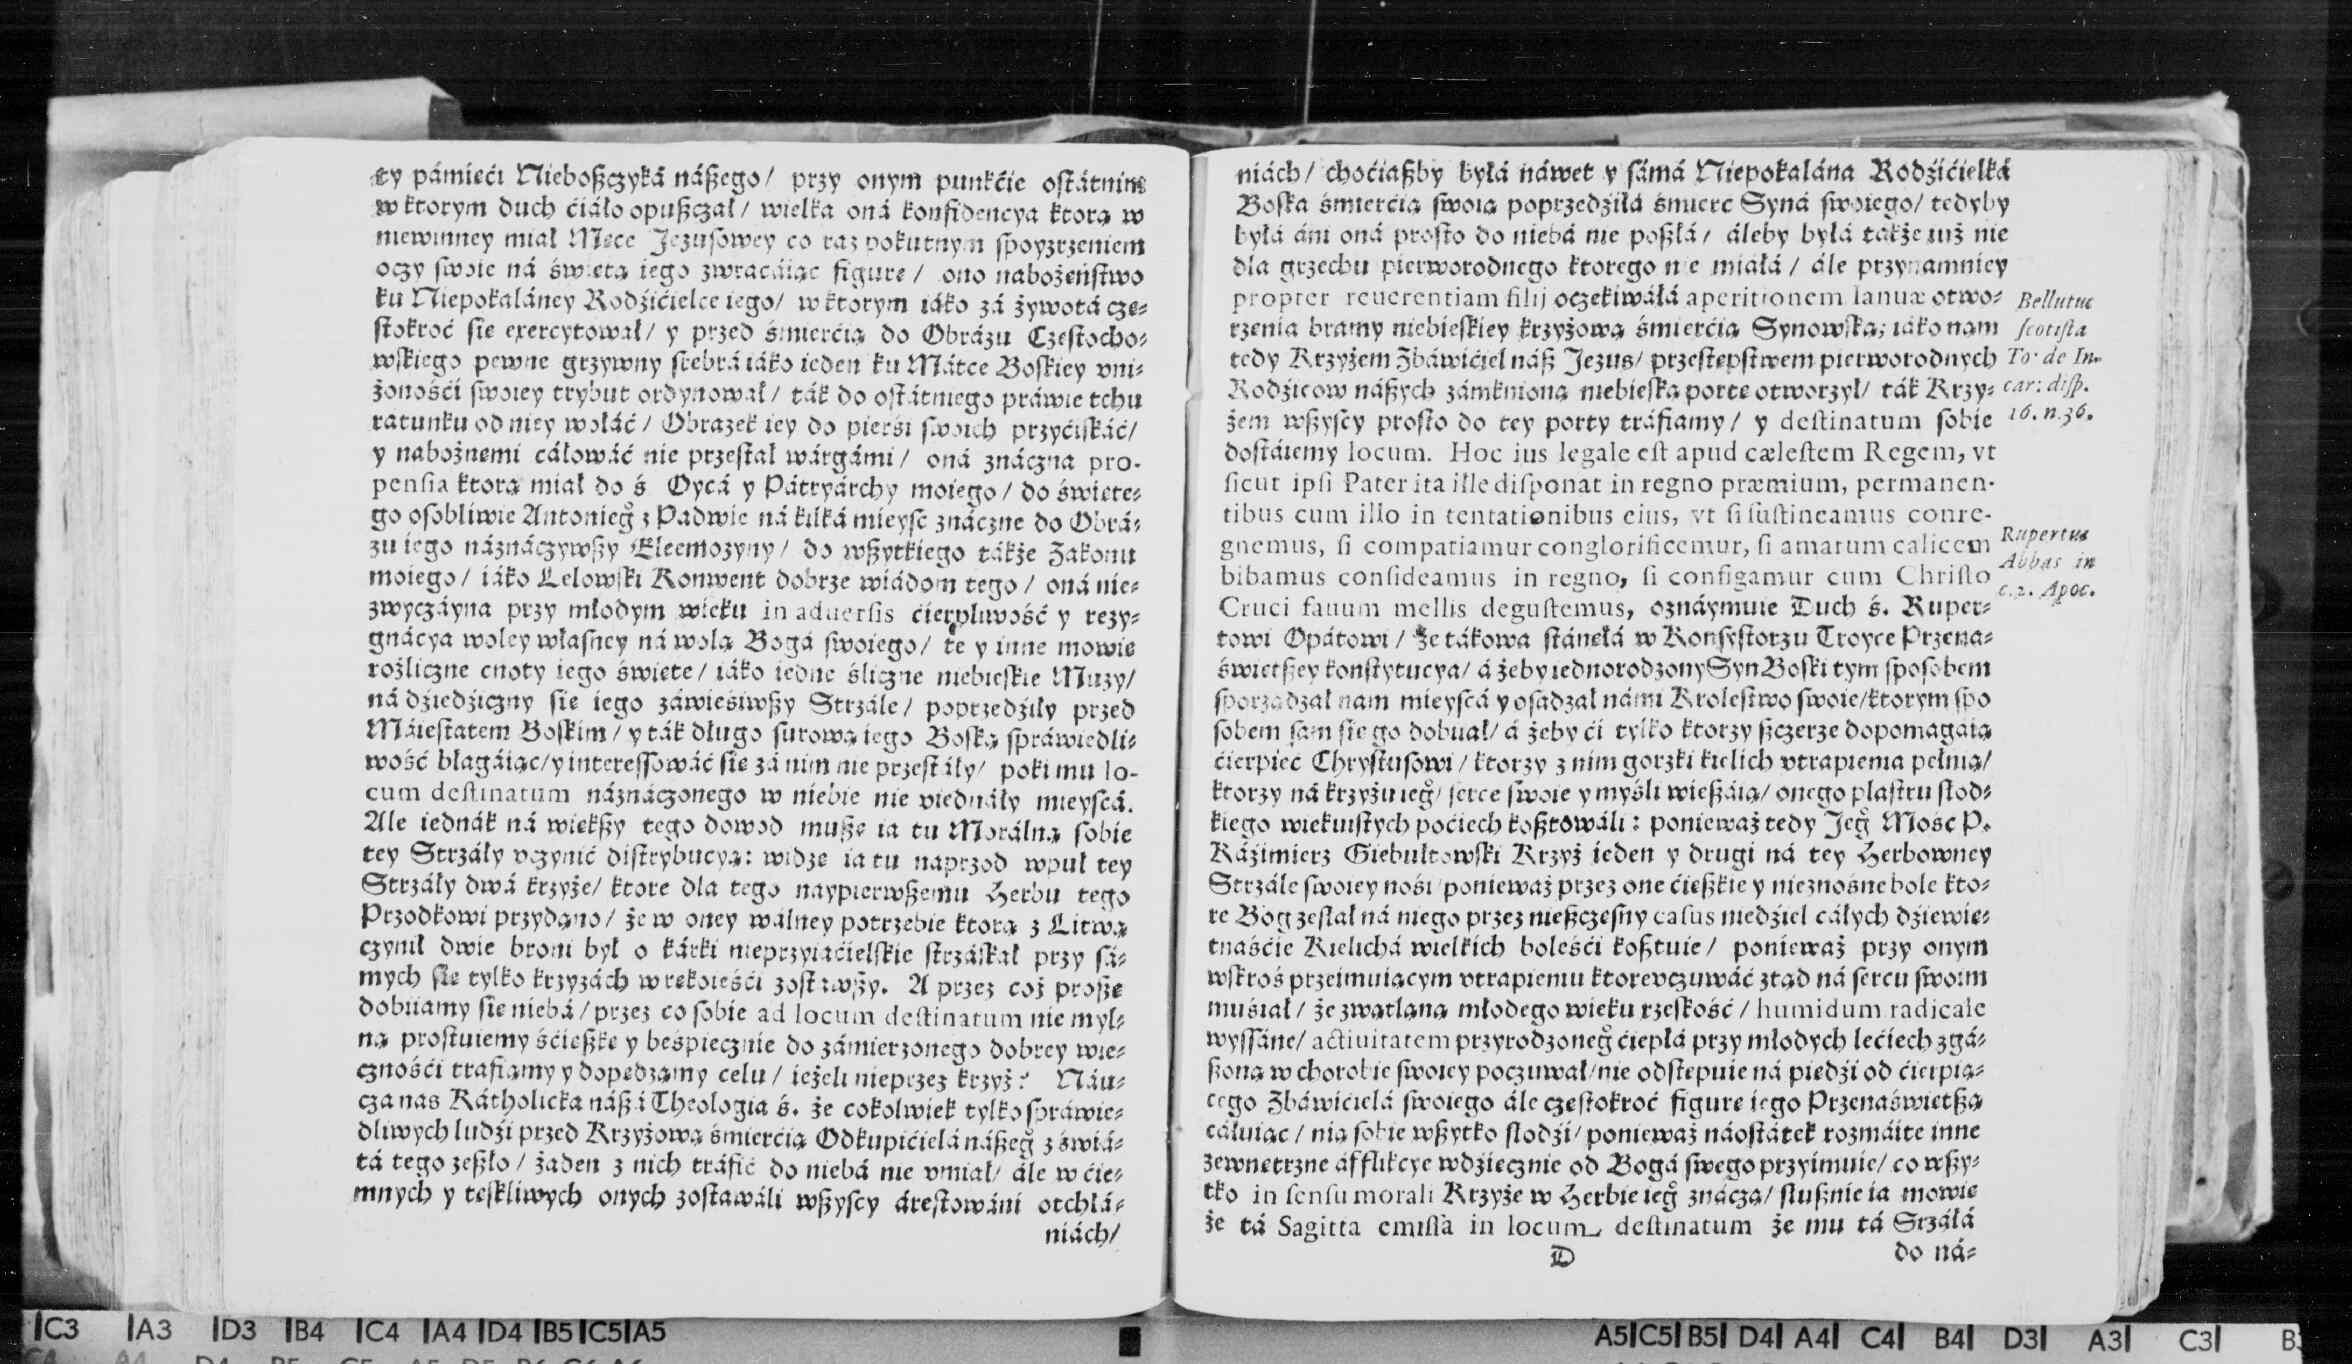 ty pámieći Nieboßczyká náßego/ przy onym punkćie ostátnim
w ktorym duch ćiáło opußczał/ wielka oná konfidencya ktorą w
niewinney miał Męce Jezusowey co raz pokutnym spoyzrzeniem
oczy swoie ná świętą iego zwracáiąc figurę/ ono nabożeństwo
ku Niepokaláney Rodźićielce iego/ w ktorym iáko zá żywotá czę-
stokroć się exercytował/ y przed śmierćią do Obrázu Częstocho-
wskiego pewne grzywny srebrá iáko ieden ku Mátce Boskiey vni-
żonośći swoiey trybut ordynował/ ták do ostátniego práwie tchu
ratunku od niey wołáć/ Obrazek iey do pierśi swoich przyćiskáć/
y nabożnemi cáłowáć nie przestał wárgámi/ oná znáczna pro-
pensia ktorą miał do ś Oycá y Pátryárchy moiego/ do święte-
go osobliwie Antonieg̊ z Padwie ná kilká mieysc znáczne do Obrá-
zu iego náznáczywßy Eleemozyny/ do wßytkiego tákże Zakonu
moiego/ iáko Lelowski Konwent dobrze wiádom tego/ oná nie-
zwyczáyna przy młodym wieku in aduersis ćierpliwość y rezy-
gnácya woley własney ná wolą Bogá swoiego/ te y inne mowię
rożliczne cnoty iego święte/ iáko iedne śliczne niebieskie Muzy/
ná dźiedźiczny się iego záwieśiwßy Strzále/ poprzedźiły przed
Máiestatem Boskim/ y ták długo surową iego Boską spráwiedli-
wość błagáiąc/ y interessowáć się zá nim nie przestáły/ poki mu lo-
cum destinatum náznáczonego w niebie nie viednáły mieyscá.
Ale iednák ná więkßy tego dowod mußę ia tu Morálną sobie
tey Strzáły vczynić distrybucyą: widzę ia tu naprzod wpuł tey
Strzáły dwá krzyże/ ktore dla tego naypierwßemu Herbu tego
Przodkowi przydano/ że w oney wálney potrzebie ktorą z Litwą
czynił dwie broni był o kárki nieprzyiaćielskie strzáskał przy sá-
mych się tylko krzyzách w rękoieśći zostawßy. A przez coż proßę
dobiiamy się niebá/ przez co sobie ad locum destinatum nie myl-
ną prostuiemy śćießkę y beśpiecznie do zámierzonego dobrey wie-
cznośći trafiamy y dopędzamy celu/ ieżeli nieprzez krzyż? Náu-
cza nas Kátholicka náßá Theologia ś. że cokolwiek tylko spráwie-
dliwych ludźi przed Krzyżową śmierćią Odkupićielá náßeg̊ z świá-
tá tego zeßło/ żaden z nich tráfić do niebá nie vmiał/ ále w ćie-
mnych y teskliwych onych zostawáli wßyscy árestowáni otchłá-
niách/
niách/ choćiaßby byłá náwet y sámá Niepokalána Rodźićielká
Boska śmierćią swoią poprzedźiłá śmierc Syná swoiego/ tedyby
byłá áni oná prosto do niebá nie poßłá/ áleby byłá także iuż nie
dla grzechu pierworodnego ktorego nie miałá/ ále przynamniey
propter reuerentiam filij oczekiwáłá aperitionem Ianuæ otwo-
rzenia bramy niebieskiey krzyżową śmierćią Synowską; iáko nam
tedy Krzyżem Zbáwićiel náß Jezus/ przestępstwem pierworodnych
Rodźicow náßych zámknioną niebieską portę otworzył/ ták Krzy-
żem wßyscy prosto do tey porty tráfiamy/ y destinatum sobie
dostáiemy locum. Hoc ius legale est apud cælestem Regem, vt
sicut ipsi Pater ita ille disponat in regno præmium, permanen-
tibus cum illo in tentationibus eius, vt si sustineamus conre-
gnemus, si compatiamur conglorificemur, si amarum calicem
bibamus consideamus in regno, si configamur cum Christo
Cruci fauum mellis degustemus, oznáymuie Duch ś. Ruper-
towi Opátowi/ że tákowa stánęłá w Konsystorzu Troyce Przena-
świętßey konstytucya/ á żeby iednorodzony Syn Boski tym sposobem
sporządzał nam mieyscá y osadzał námi Krolestwo swoie/ ktorym spo
sobem sam się go dobiiał/ á żeby ći tylko ktorzy ßczerze dopomagáią
ćierpieć Chrystusowi/ ktorzy z nim gorzki kielich vtrapienia pełnią/
ktorzy ná krzyżu ieg̊ serce swoie y myśli wießáią/ onego plastru słod-
kiego wiekuistych poćiech koßtowáli: ponieważ tedy Jeg̊ Mośc P.
Káźimierz Giebułtowski Krzyż ieden y drugi ná tey Herbowney
Strzále swoiey nośi ponieważ przez one ćięßkie y nieznośne bole kto-
re Bog zesłał ná niego przez nießczesny casus niedźiel cáłych dźiewie-
tnaśćie Kielichá wielkich boleśći koßtuie/ ponieważ przy onym
wskroś przeimuiącym vtrapieniu ktore vczuwáć ztąd ná sercu swoim
muśiał/ że zwątloną młodego wieku rzeskość/ humidum radicale
wyssáne/ actiuitatem przyrodzoneg̊ ćiepłá przy młodych lećiech zgá-
ßoną w chorobie swoiey poczuwał/ nie odstępuie ná piędźi od ćierpią-
cego Zbáwićielá swoiego ále częstokroć figurę iego Przenaświętßą
cáłuiąc/ nią sobie wßytko słodźi/ ponieważ náostátek rozmáite inne
zewnętrzne áfflikcye wdźięcznie od Bogá swego przyimuie/ co wßy-
tko in sensu morali Krzyże w Herbie ieg̊ znáczą/ słußnie ia mowię
że tá Sagitta emissà in locum destinatum że mu tá Srzáłá
D do ná-
Bellutus
scotista
To: de In-
car: disp.
16. n. 36.
Rupertus
Abbas in
c. 2. Apoc.
C3 A3 D3 B4 C4 A4 D4 B5 C5 A5
A5 C5 B5 D4 A4 C4 B4 D3 A3 C3